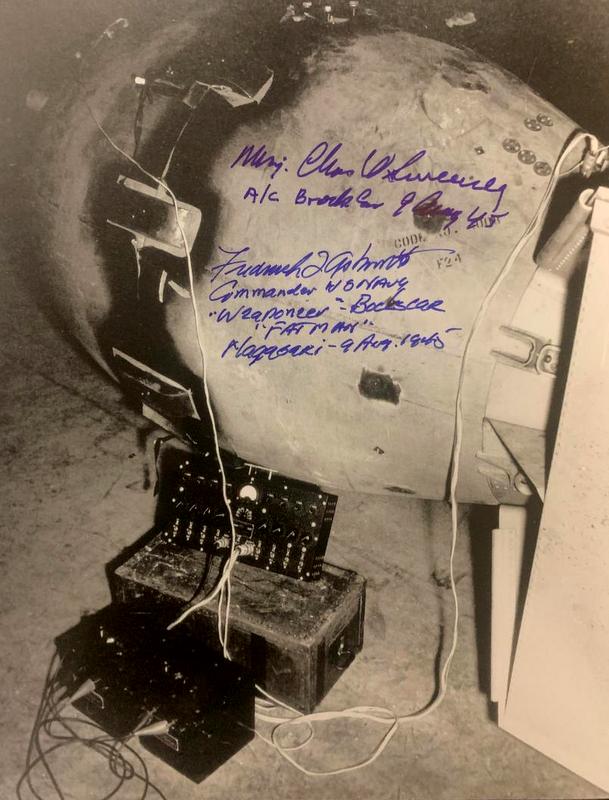 Maj. Chas W Sweeney
A/C Bockscar 9 Aug 45
CODE
F24
Frederick L Ashworth
Commander USNavy
"Weaponeer" - Bockscar
"FATMAN"
Nagasaki - 9 Aug. 1945